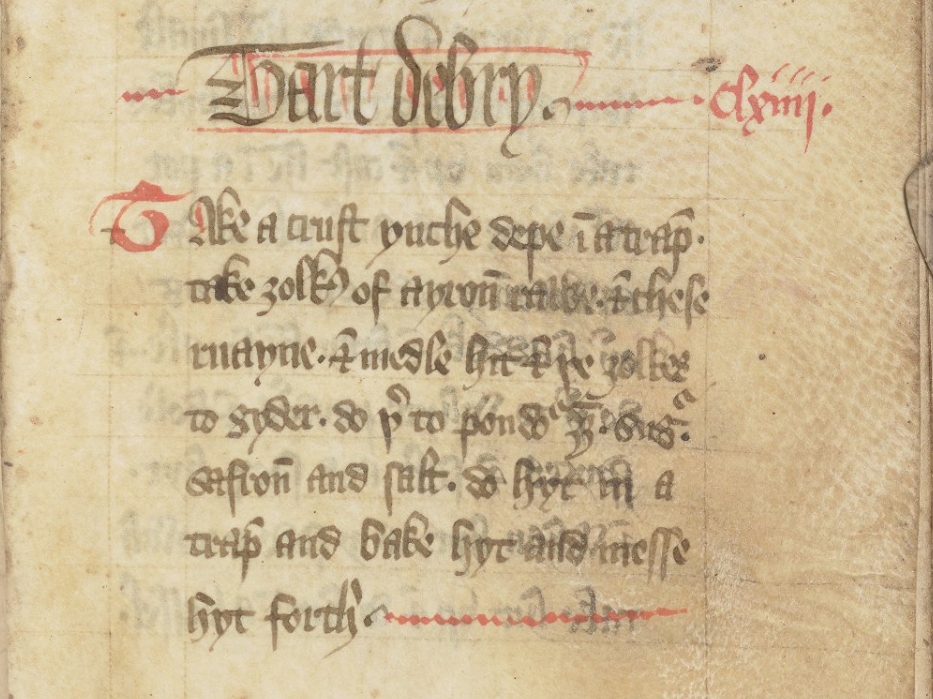 Tart de bry. clxiiij.
Take a crust ynche depe ī a trap̄.
take zolkꝭ of ayroun̄ rawe. & chese
ruayne. & medle hit & þe zolkes
to gyder. do þͬto poudoͬ gyn̄. sugͣ.
safroun̄ and salt. do hyt in a
trap̄ and bake hyt and messe
hyt forth.